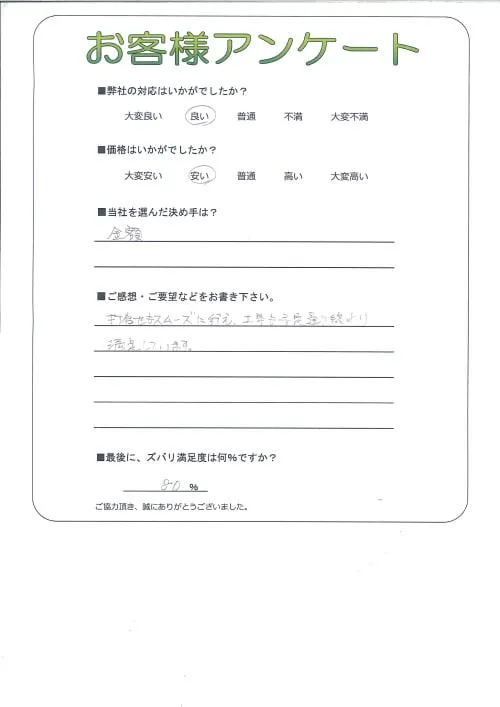 お客様アンケート
■弊社の対応はいかがでしたか？
大変良い 良い 普通 不満 大変不満
■価格はいかがでしたか？
大変安い 安い 普通 高い 大変高い
■当社を選んだ決め手は？
金額
■ご感想・ご要望などをお書き下さい。
打合せもスムーズに行え、工事も予定通り
満足しています。
■最後に、ズバリ満足度は何％ですか？
80 ％
ご協力頂き、誠にありがとうございました。